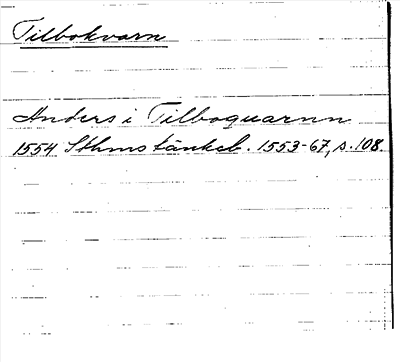 Tilbokvarn
Anders i Tilboquarnn
1554 Sthms tänkeb. 1553-67, s. 108.